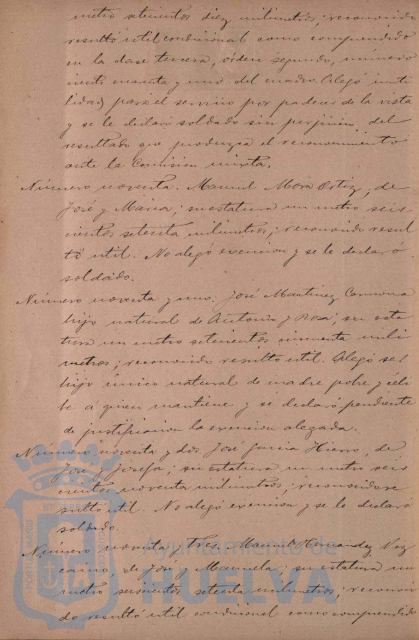 metro setecientos diez milimetros; reconocido
resultó util condicional como comprendido
en la clase tercera, órden segundo, número
ciento cuarenta y uno del cuadro. Alegó inu
lidad para el servicio por padecer de la vista
y se le declaró soldado sin perjuicio del
resultado que produzca el reconocimiento
ante la Comision mixta.
Número noventa. Manuel Mora Ortiz, de
José y Maria; su estatura un metro seis
cientos setenta milimetros; reconocido resul
tó util. No alegó exencion y se le declaró
soldado.
Número noventa y uno. José Martinez
hijo natural de Antonio y Rosa; su esta
tura un metro setecientos cincuenta mili
metros; reconocido resultó util. Alegó ser
hijo único natural de madre pobre y céli
be á quien mantiene y se declaró pendiente
de justificacion la exencion alegada.
Número noventa y dos. José Garcia Hierro, de
José y Josefa; su estatura un metro seis
cientos noventa milimetros; reconocido re
sultó util. No alegó exencion y se le declaró
soldado.
Número noventa y tres. Manuel Hernandez Viz
caino, de José y Manuela; su estatura un
metro seiscientos setenta milimetros; reconoci
do resultó util condicional como comprendido
Ayuntamiento de
HUELVA